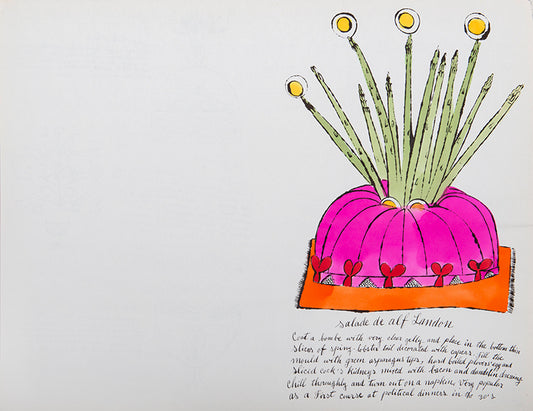 salade de alf Landon
Coat a bombe with very clear jelly and place in the bottom thin
slices of spiny-lobster tail decorated with capers. fill the
mould with green asparagus tips, hard boiled plovers' egg and
sliced cock's kidneys mixed with bacon and dandelion dressing
Chill thoroughly and turn out on a napkin. Very popular
as a first course at political dinners in the 30's